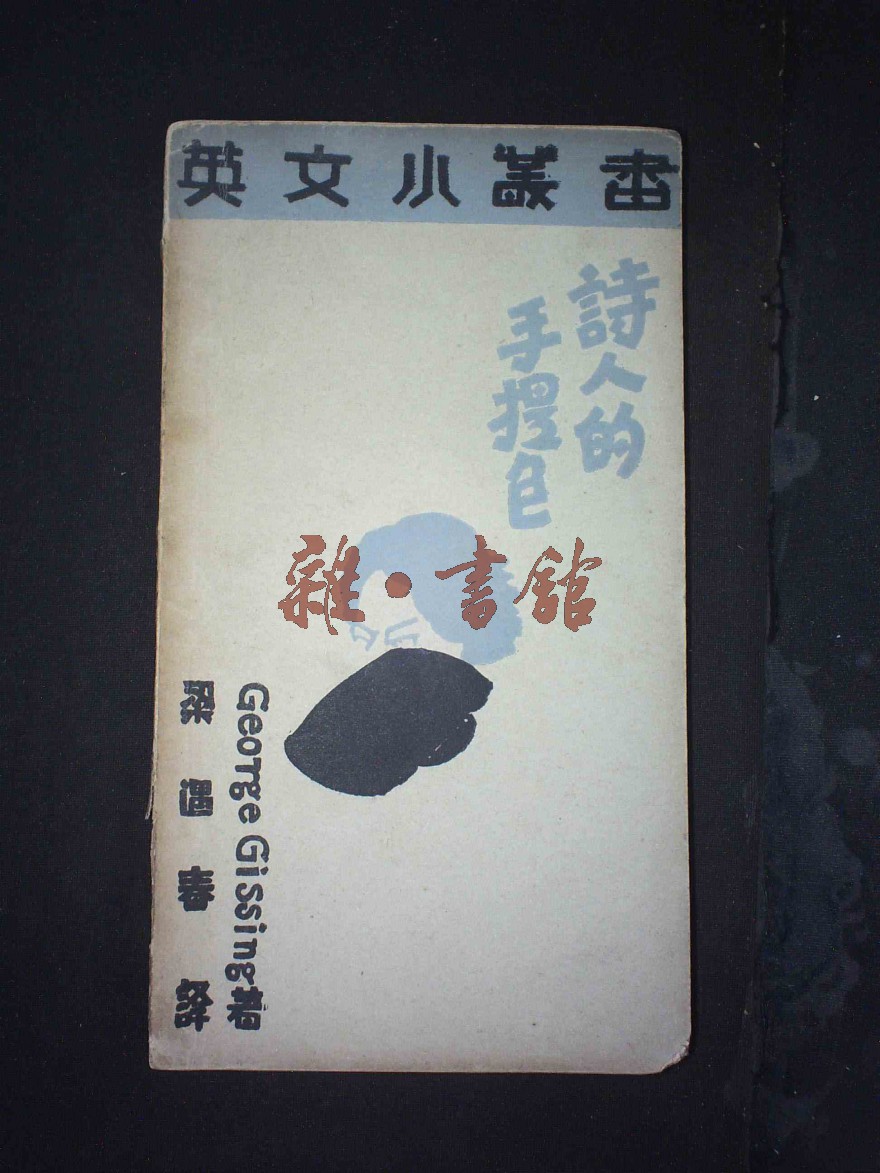 英文小叢書
詩人的
手提包
雜・書館
George Gissing
春